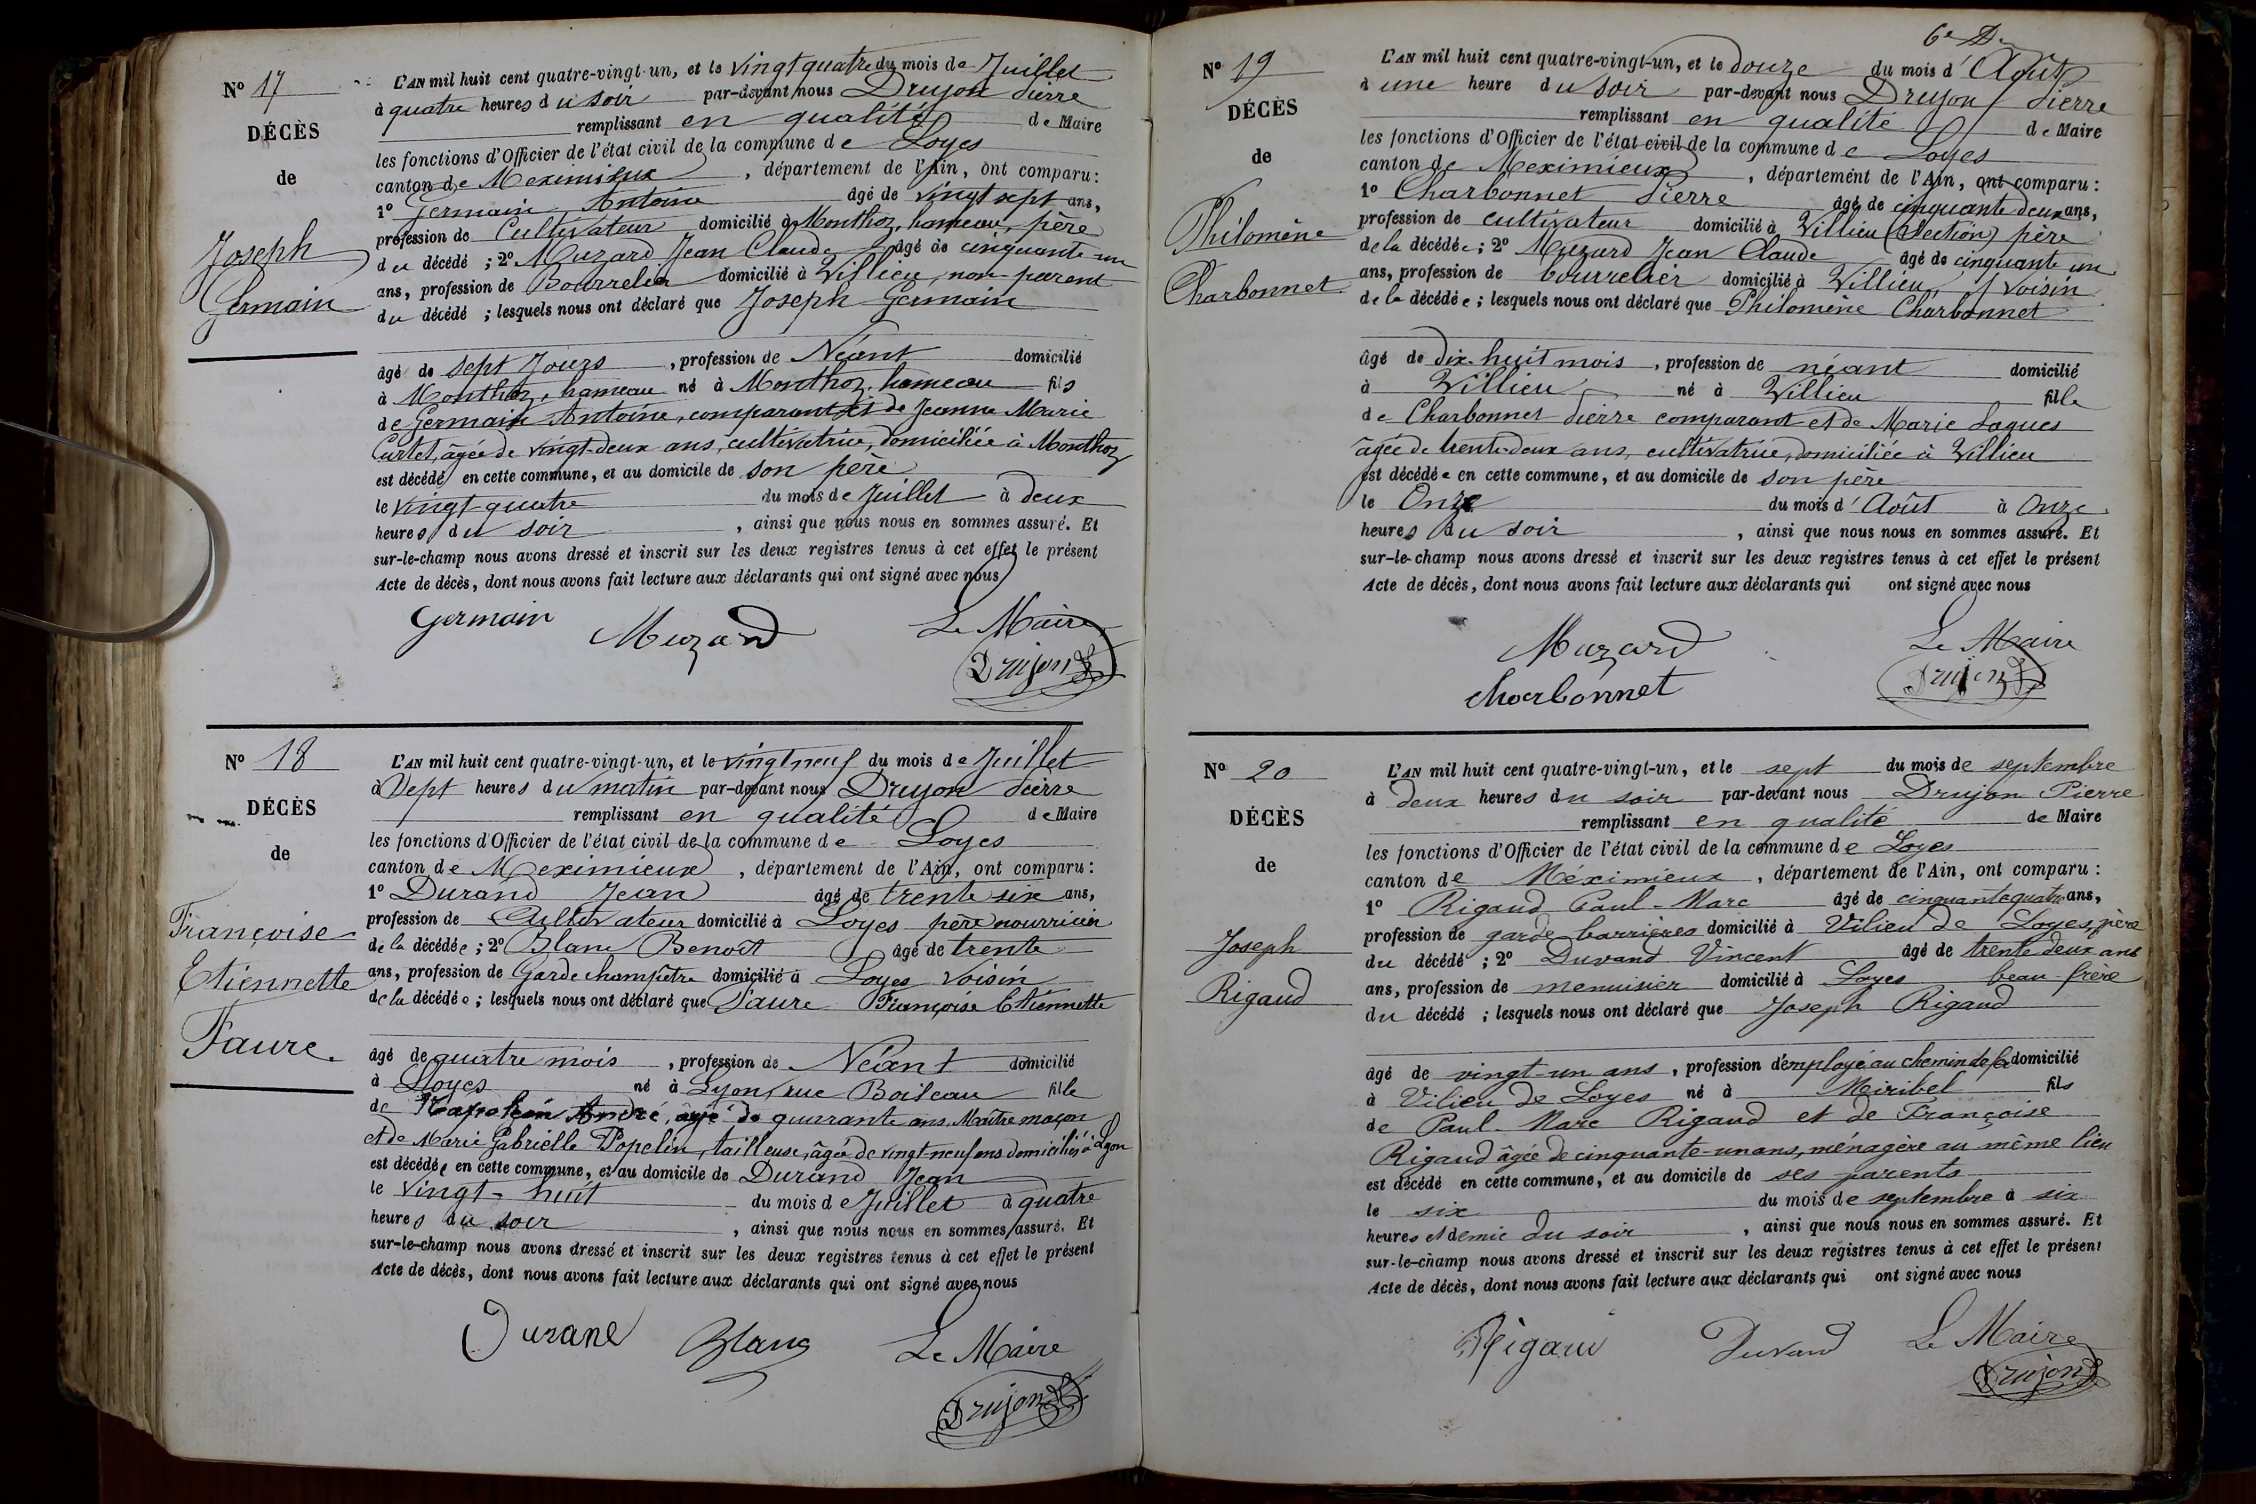 No 17
DÉCÈS
de
Joseph
Germain
L'AN mil huit cent quatre-vingt-un, et le vingt quatre du mois de Juillet
à quatre heures du soir par-devant nous Drujon Pierre
remplissant en qualité de Maire
les fonctions d'Officier de l'état civil de la commune de Loyes
canton de Meximieux, département de l'Ain, ont comparu:
1º Germain Antoine âgé de vingt sept ans,
profession de Cultivateur domicilié à Monthoz, hameau, père
du décédé ; 2º Muzard Jean Claude âgé de cinquante un
ans, profession de Bourrelier domicilié à Villieu, non parent
du décédé ; lesquels nous ont déclaré que Joseph Germain
âgé de sept Jours, profession de Néant domicilié
à Monthoz, hameau né à Monthoz, hameau fils
de Germain Antoine, comparant et de Jeanne Marie
Curtet, âgée de vingt-deux ans, cultivatrice, domiciliée à Monthoz
est décédé en cette commune, et au domicile de son père
le vingt-quatre du mois de Juillet à deux
heures du soir, ainsi que nous nous en sommes assuré. Et
sur-le-champ nous avons dressé et inscrit sur les deux registres tenus à cet effet le présent
Acte de décès, dont nous avons fait lecture aux déclarants qui ont signé avec nous
Germain Muzard Le Maire
Drujon
No 18
DÉCÈS
de
Françoise
Etiennette
Faure
L'AN mil huit cent quatre-vingt-un, et le vingt neuf du mois de Juillet
à Sept heures du matin par-devant nous Drujon Pierre
remplissant en qualité de Maire
les fonctions d'Officier de l'état civil de la commune de Loyes
canton de Meximieux, département de l'Ain, ont comparu:
1º Durand Jean âgé de trente six ans,
profession de Cultivateur domicilié à Loyes père nourricier
de la décédée ; 2º Blanc Benoît âgé de trente
ans, profession de Garde champêtre domicilié à Loyes voisin
de la décédée ; lesquels nous ont déclaré que Faure Françoise Etiennette
âgé de quatre mois, profession de Néant domicilié
à Loyes né à Lyon, rue Boileau fille
de Napoléon André, âgé de quarante ans, Maître maçon
et de Marie Gabrielle Popelin, tailleuse, âgée de vingt-neuf ans domiciliés à Lyon
est décédée en cette commune, et au domicile de Durand Jean
le vingt-huit du mois de Juillet à quatre
heures du soir, ainsi que nous nous en sommes assuré. Et
sur-le-champ nous avons dressé et inscrit sur les deux registres tenus à cet effet le présent
Acte de décès, dont nous avons fait lecture aux déclarants qui ont signé avec nous
Durand Blanc Le Maire
Drujon
No 19
DÉCÈS
de
Philomène
Charbonnet
L'AN mil huit cent quatre-vingt-un, et le douze du mois d'Août
à une heure du soir par-devant nous Drujon Pierre
remplissant en qualité de Maire
les fonctions d'Officier de l'état civil de la commune de Loyes
canton de Meximieux, département de l'Ain, ont comparu:
1º Charbonnet Pierre âgé de cinquante deux ans,
profession de cultivateur domicilié à Villieu (Section) père
de la décédée ; 2º Muzard Jean Claude âgé de cinquante un
ans, profession de bourrelier domicilié à Villieu, voisin
de la décédée ; lesquels nous ont déclaré que Philomène Charbonnet
âgé de dix-huit mois, profession de néant domicilié
à Villieu né à Villieu fille
de Charbonnet Pierre comparant et de Marie Laques
âgée de trente-deux ans, cultivatrice, domiciliée à Villieu
est décédée en cette commune, et au domicile de son père
le Onze du mois d'Août à Onze
heures du soir, ainsi que nous nous en sommes assuré. Et
sur-le-champ nous avons dressé et inscrit sur les deux registres tenus à cet effet le présent
Acte de décès, dont nous avons fait lecture aux déclarants qui ont signé avec nous
Muzard Le Maire
Charbonnet Drujon
No 20
DÉCÈS
de
Joseph
Rigaud
L'AN mil huit cent quatre-vingt-un, et le sept du mois de septembre
à deux heures du soir par-devant nous Drujon Pierre
remplissant en qualité de Maire
les fonctions d'Officier de l'état civil de la commune de Loyes
canton de Meximieux, département de l'Ain, ont comparu:
1º Rigaud Paul-Marc âgé de cinquante quatre ans,
profession de garde barrières domicilié à Vilieu de Loyes, père
du décédé ; 2º Durand Vincent âgé de trente deux ans
ans, profession de menuisier domicilié à Loyes beau-frère
du décédé ; lesquels nous ont déclaré que Joseph Rigaud
âgé de vingt-un ans, profession d'employé au chemin de fer domicilié
à Vilieu de Loyes né à Miribel fils
de Paul-Marc Rigaud et de Françoise
Rigaud âgée de cinquante-un ans, ménagère au même lieu
est décédé en cette commune, et au domicile de ses parents
le six du mois de septembre à six
heures et demie du soir, ainsi que nous nous en sommes assuré. Et
sur-le-champ nous avons dressé et inscrit sur les deux registres tenus à cet effet le présent
Acte de décès, dont nous avons fait lecture aux déclarants qui ont signé avec nous
Rigaud Durand Le Maire
Drujon